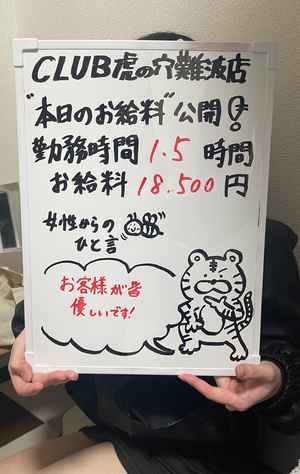 CLUB虎の穴難波店
"本日のお給料"公開!
勤務時間 1.5 時間
お給料 18.500円
女性からの
ひと言
お客様が皆
優しいです!